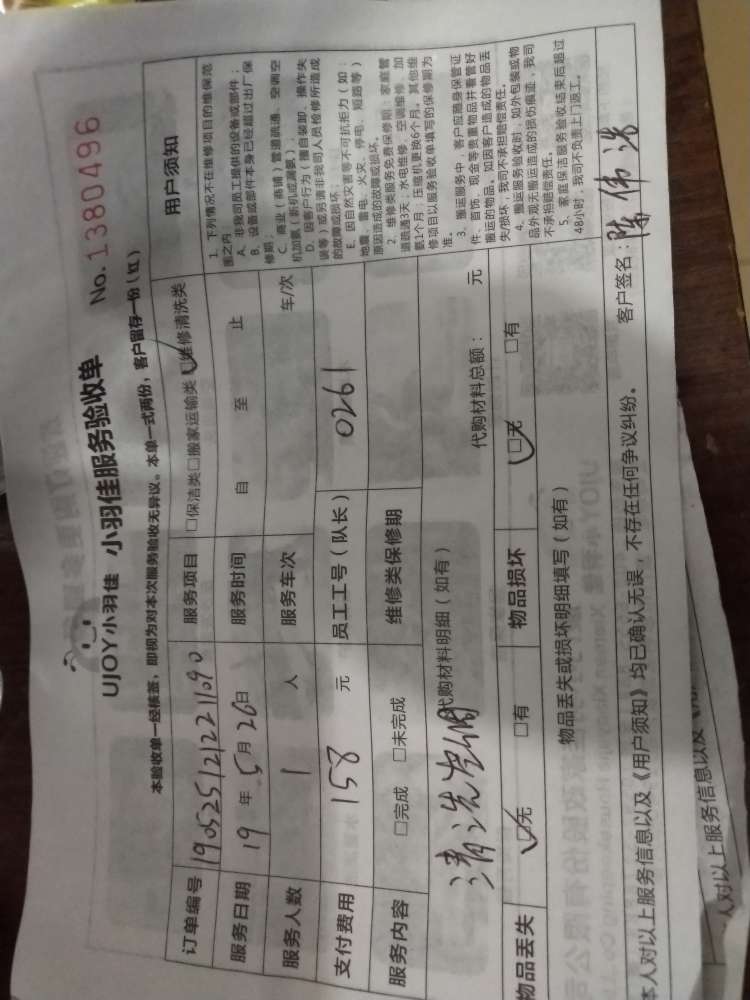 UJOY小羽佳 小羽佳服务验收单 No. 1380496
本验收单一经核签，即视为对本次服务验收无异议。本单一式两份，客户留存一份（红）
订单编号 190525121221090 服务项目 □保洁类□搬家运输类☑维修清洗类
服务日期 19年5月26日 服务时间 自 至 止
服务人数 1 人 服务车次 车/次
支付费用 158 元 员工工号（队长） 0261
服务内容 □完成 □未完成 维修类保修期
清洗空调 代购材料明细（如有） 代购材料总额： 元
物品丢失 ☑无 □有 物品损坏 ☑无 □有
物品丢失或损坏明细填写（如有）
用户须知
1. 下列情况不在维修项目的维保范
围之内
A. 非我司员工提供的设备或部件；
B. 设备或部件本身已经超过出厂保
修期；
C. 商业（商铺）管道疏通、空调空
机加氨（新机或漏氨）；
D. 因客户行为（擅自装卸、操作失
误等）或另请非我司人员检修所造成
的故障或损坏；
E. 因自然灾害等不可抗拒力（如：
地震、雷电、火灾、停电、短路等）
原因造成的故障或损坏。
2. 维修类服务免费保修期：家庭管
道疏通3天，水电维修、空调维修、加
氨1个月；压缩机更换6个月。其他维
修项目以服务验收单填写的保修期为
准。
3. 搬运服务中，客户应随身保管证
件、首饰、现金等贵重物品并看管好
搬运的物品。如因客户造成的物品丢
失/损坏，我司不承担赔偿责任。
4. 搬运服务验收时，如外包装或物
品外观无搬运造成的损伤痕迹，我司
不承担赔偿责任。
5. 家庭保洁服务验收结束后超过
48小时，我司不负责上门返工。
本人对以上服务信息以及《用户须知》均已确认无误，不存在任何争议纠纷。 客户签名：陈伟洪
人对以上服务信息以及